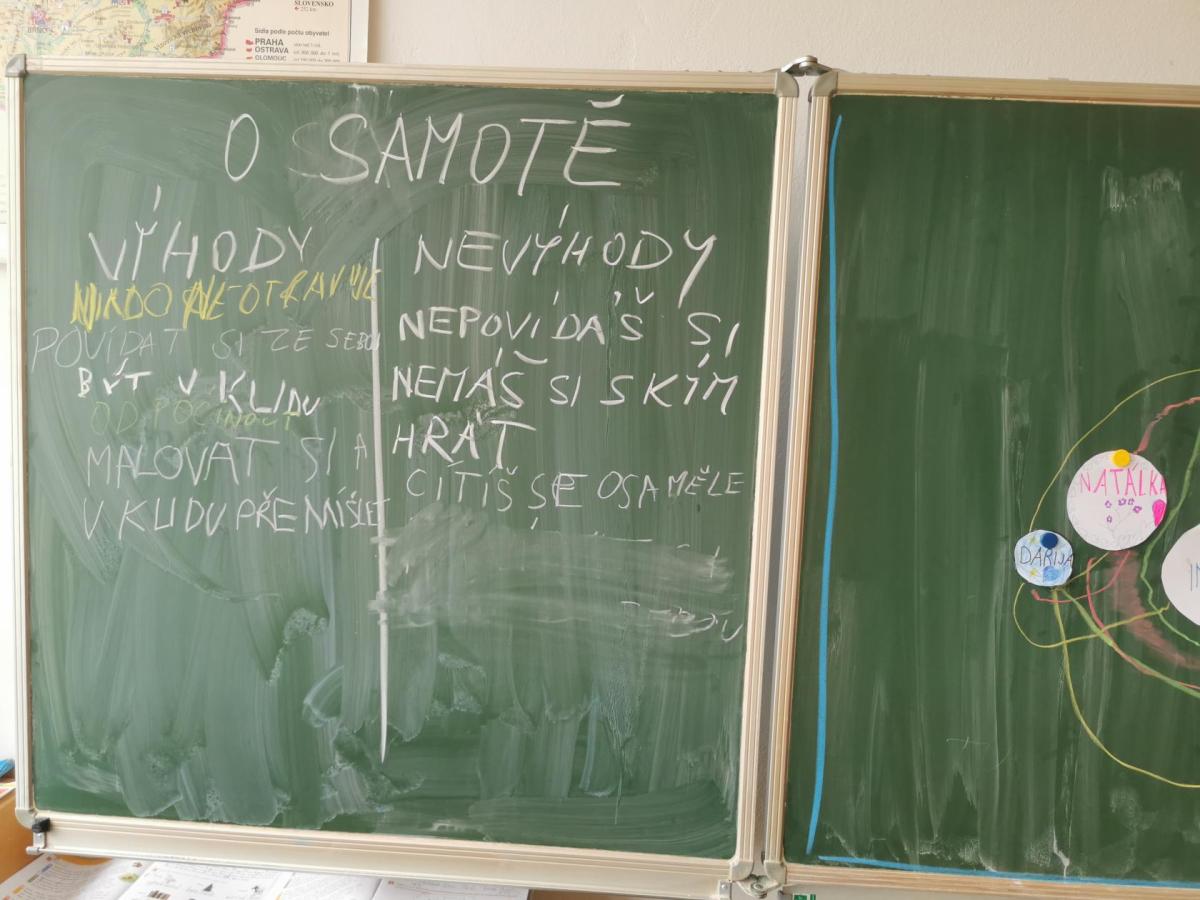 SLOVENSKO
Sídla podle počtu obyvatel
PRAHA
OSTRAVA
OLOMOUC
O SAMOTĚ
VÝHODY
NIKDO NEOTRAVUJE
POVÍDAT SI ZE SEBOU
BÝT V KLIDU
ODPOČINOUT
MALOVAT SI A
V KLIDU PŘEMÍŠLE
NEVÝHODY
NEPOVÍDÁŠ SI
NEMÁŠ SI S KÝM
HRÁT
CÍTÍŠ SE OSAMĚLE
NATÁLKA
DARIJA